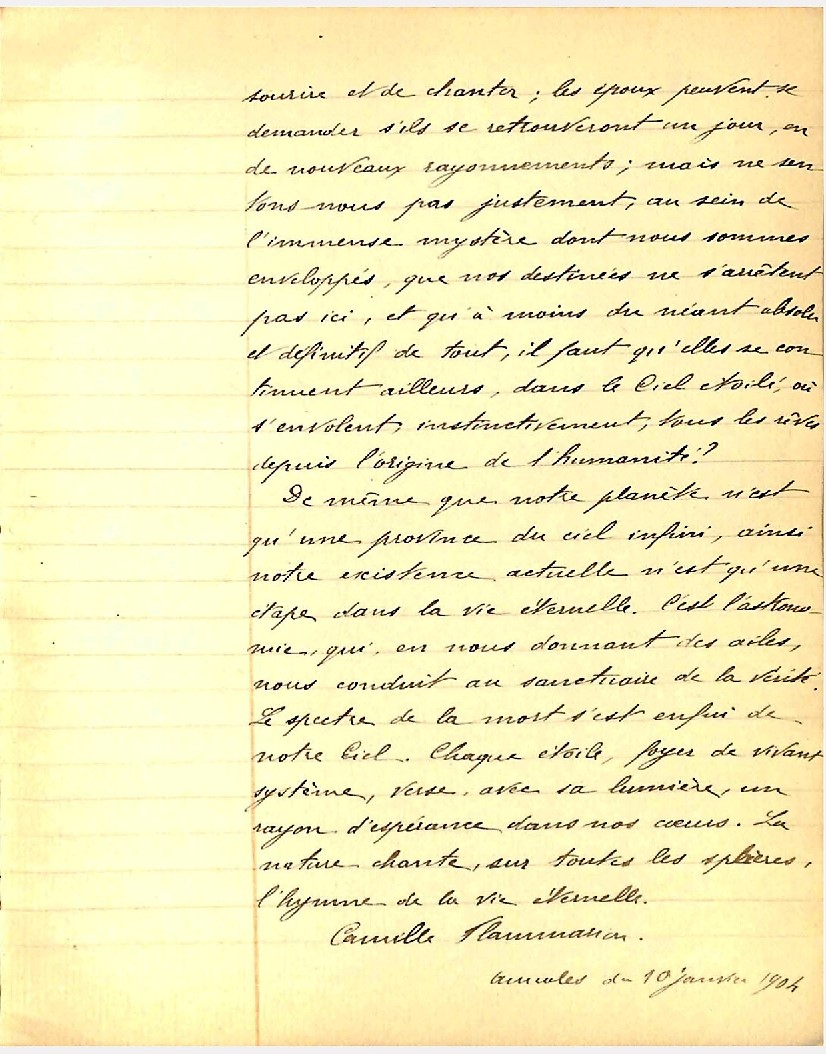 sourire et de chanter ; les époux peuvent se
demander s'ils se retrouveront un jour, en
de nouveaux rayonnements ; mais ne sen
tons nous pas justement, au sein de
l'immense mystère dont nous sommes
enveloppés, que nos destinées ne s'arrêtent
pas ici, et qu'à moins du néant absolu
et définitif de tout, il faut qu'elles se con
tinuent ailleurs, dans le Ciel étoilé, où
s'envolent, instinctivement, tous les rêves
depuis l'origine de l'humanité ?
De même que notre planète n'est
qu'une province du ciel infini, ainsi
notre existence actuelle n'est qu'une
étape dans la vie éternelle. C'est l'astrono-
mie, qui, en nous donnant des ailes,
nous conduit au sanctuaire de la vérité.
Le spectre de la mort s'est enfui de
notre Ciel. Chaque étoile, foyer de vivant
système, verse, avec sa lumière, un
rayon d'espérance dans nos cœurs. La
nature chante, sur toutes les sphères,
l'hymne de la vie éternelle.
Camille Flammarion.
Annales du 10 janvier 1904